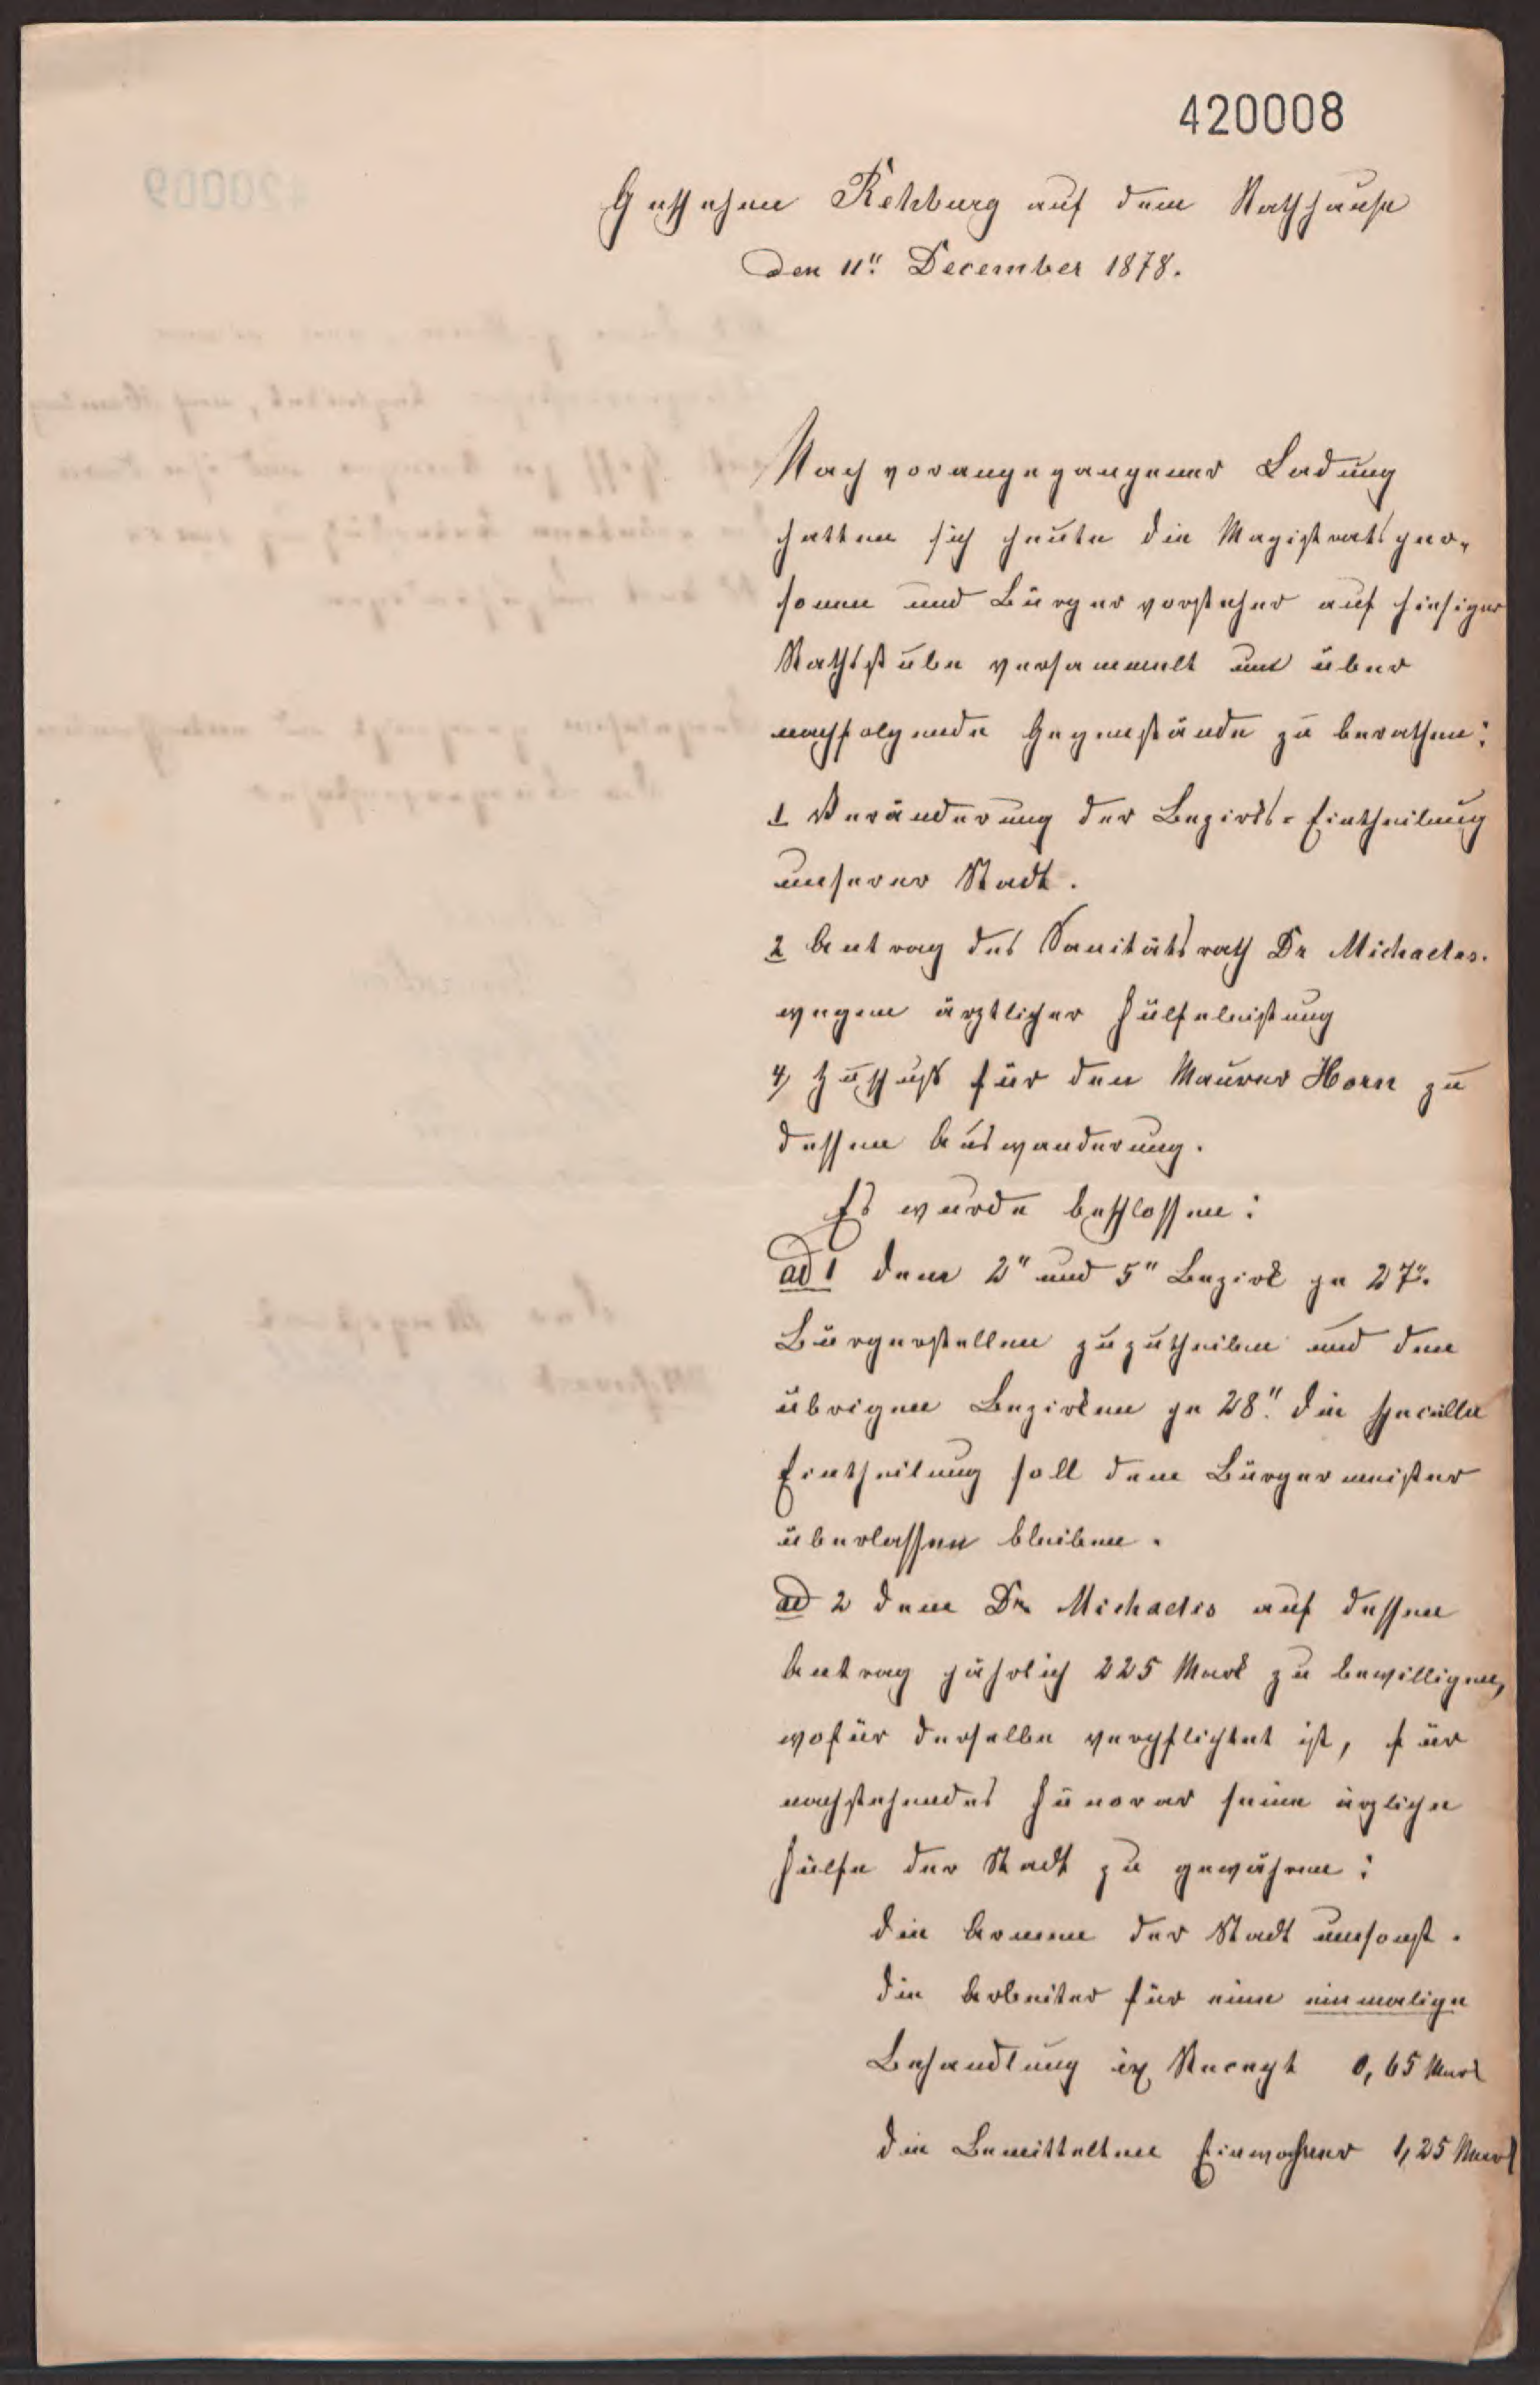 420008
Geschehen Rehburg auf dem Rathhause
den 11" December 1878.
Nach vorangegangener Ladung
hatten sich heute die Magistratsper-
sonen und Bürgervorsteher auf hiesiger
Rathsstube versammelt um über
nachfolgende Gegenstände zu berathen:
1 Veränderung der Bezirks-Eintheilung
unserer Stadt.
2 Antrag des Sanitätsrath Dr Michaelis.
wegen ärztlicher Hülfeleistung
4) Zuschuß für den Maurer Horn zu
dessen Auswanderung.
Es wurde beschlossen:
ad 1 dem 2" und 5" Bezirk je 27".
Bürgerstellen zuzutheilen und den
übrigen Bezirken je 28". die specielle
Eintheilung soll dem Bürgermeister
überlassen bleiben.
ad 2 dem Dr Michaelis auf dessen
Antrag jährlich 225 Mark zu bewilligen,
wofür derselbe verpflichtet ist, für
nachstehendes Honorar seine ärzliche
Hülfe der Stadt zu gewähren:
die Armen der Stadt umsonst.
die Arbeiter für eine einmalige
Behandlung Recept 0,65 Mark
die Bemittelten Einwohner 1,25 Mark